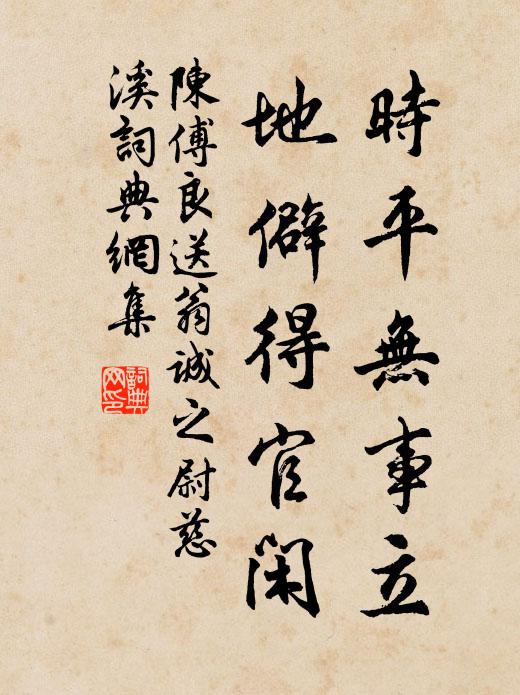 時平無事立
地僻得官閑
陳傅良送翁誠之尉慈
溪詞典網集
詞典
网印